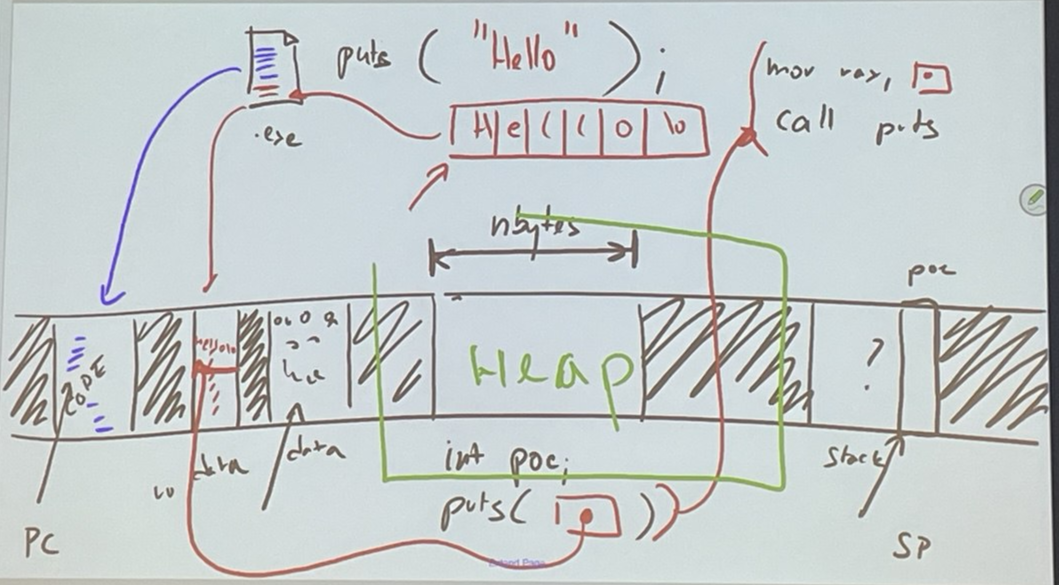 puts ( "Hello" );
.exe
H e l l o \0
mov rax,
call puts
nbytes
poc
CODE
?
Heap
data
data
int poc;
puts( )
stack
PC
SP